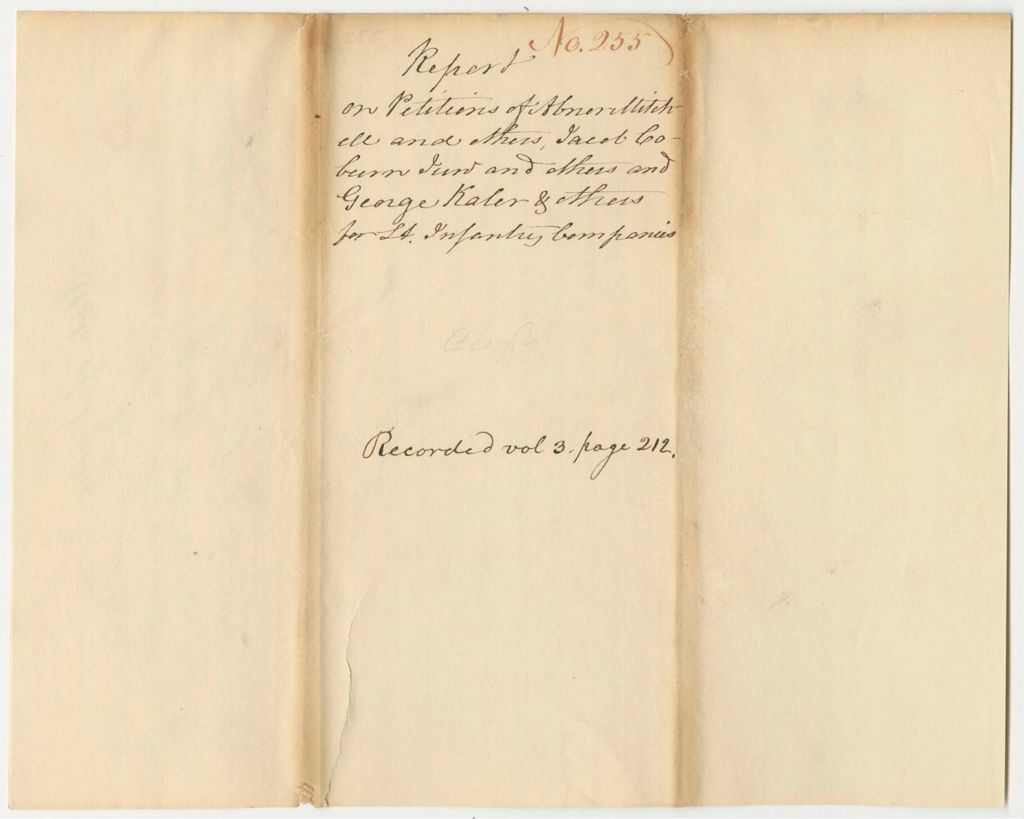 No. 255
Report
on Petitions of Abner Mitch-
ell and others, Jacob Co-
burn Junr and others and
George Kaler & others
for Lt. Infantry Companies
Recorded vol 3. page 212.